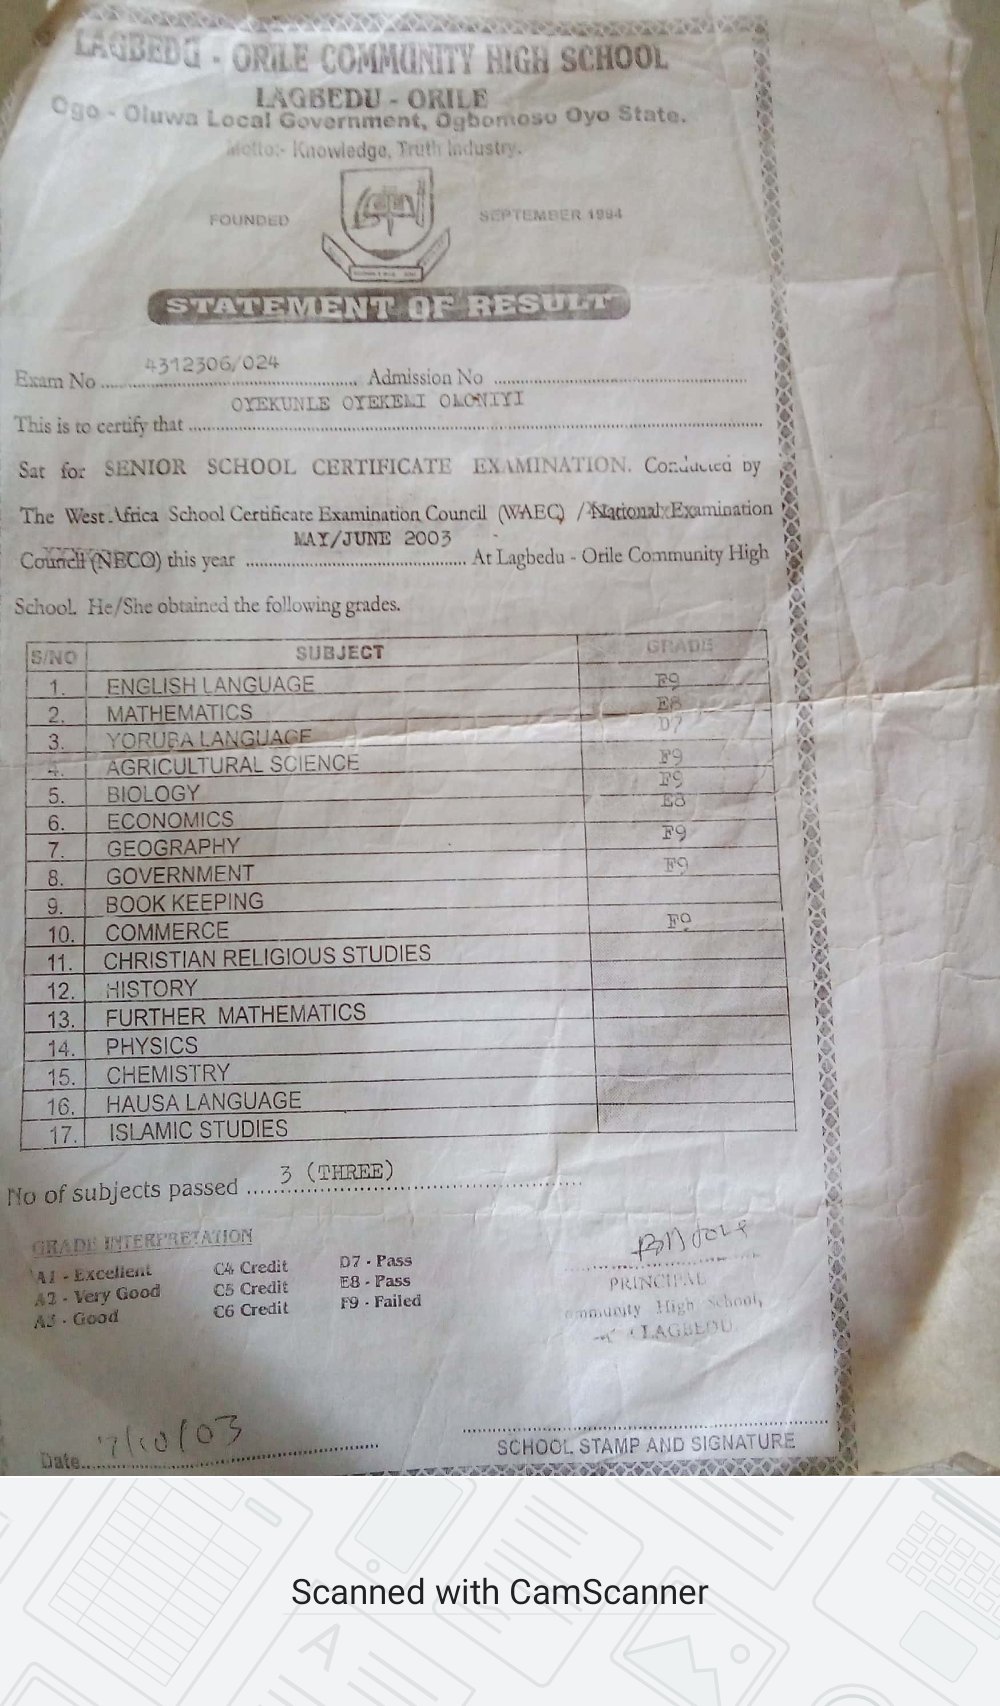 LAGBEDU - ORILE COMMUNITY HIGH SCHOOL
LAGBEDU - ORILE
Ogo - Oluwa Local Government, Ogbomoso Oyo State.
Motto:- Knowledge, Truth Industry.
FOUNDED SEPTEMBER 1984
STATEMENT OF RESULT
Exam No 4312306/024 Admission No
This is to certify that OYEKUNLE OYEKEMI OLONIYI
Sat for SENIOR SCHOOL CERTIFICATE EXAMINATION. Conducted by
The West Africa School Certificate Examination Council (WAEC) / National Examination
Council (NECO) this year MAY/JUNE 2003 At Lagbedu - Orile Community High
School. He/She obtained the following grades.
S/NO SUBJECT GRADE
1. ENGLISH LANGUAGE F9
2. MATHEMATICS E8
3. YORUBA LANGUAGE D7
4. AGRICULTURAL SCIENCE F9
5. BIOLOGY F9
6. ECONOMICS E8
7. GEOGRAPHY F9
8. GOVERNMENT F9
9. BOOK KEEPING
10. COMMERCE F9
11. CHRISTIAN RELIGIOUS STUDIES
12. HISTORY
13. FURTHER MATHEMATICS
14. PHYSICS
15. CHEMISTRY
16. HAUSA LANGUAGE
17. ISLAMIC STUDIES
No of subjects passed 3 (THREE)
GRADE INTERPRETATION
A1 - Excellent C4 Credit D7 - Pass
A2 - Very Good C5 Credit E8 - Pass
A3 - Good C6 Credit F9 - Failed
PRINCIPAL
Community High School,
LAGBEDU.
Date 7/10/03
SCHOOL STAMP AND SIGNATURE
Scanned with CamScanner